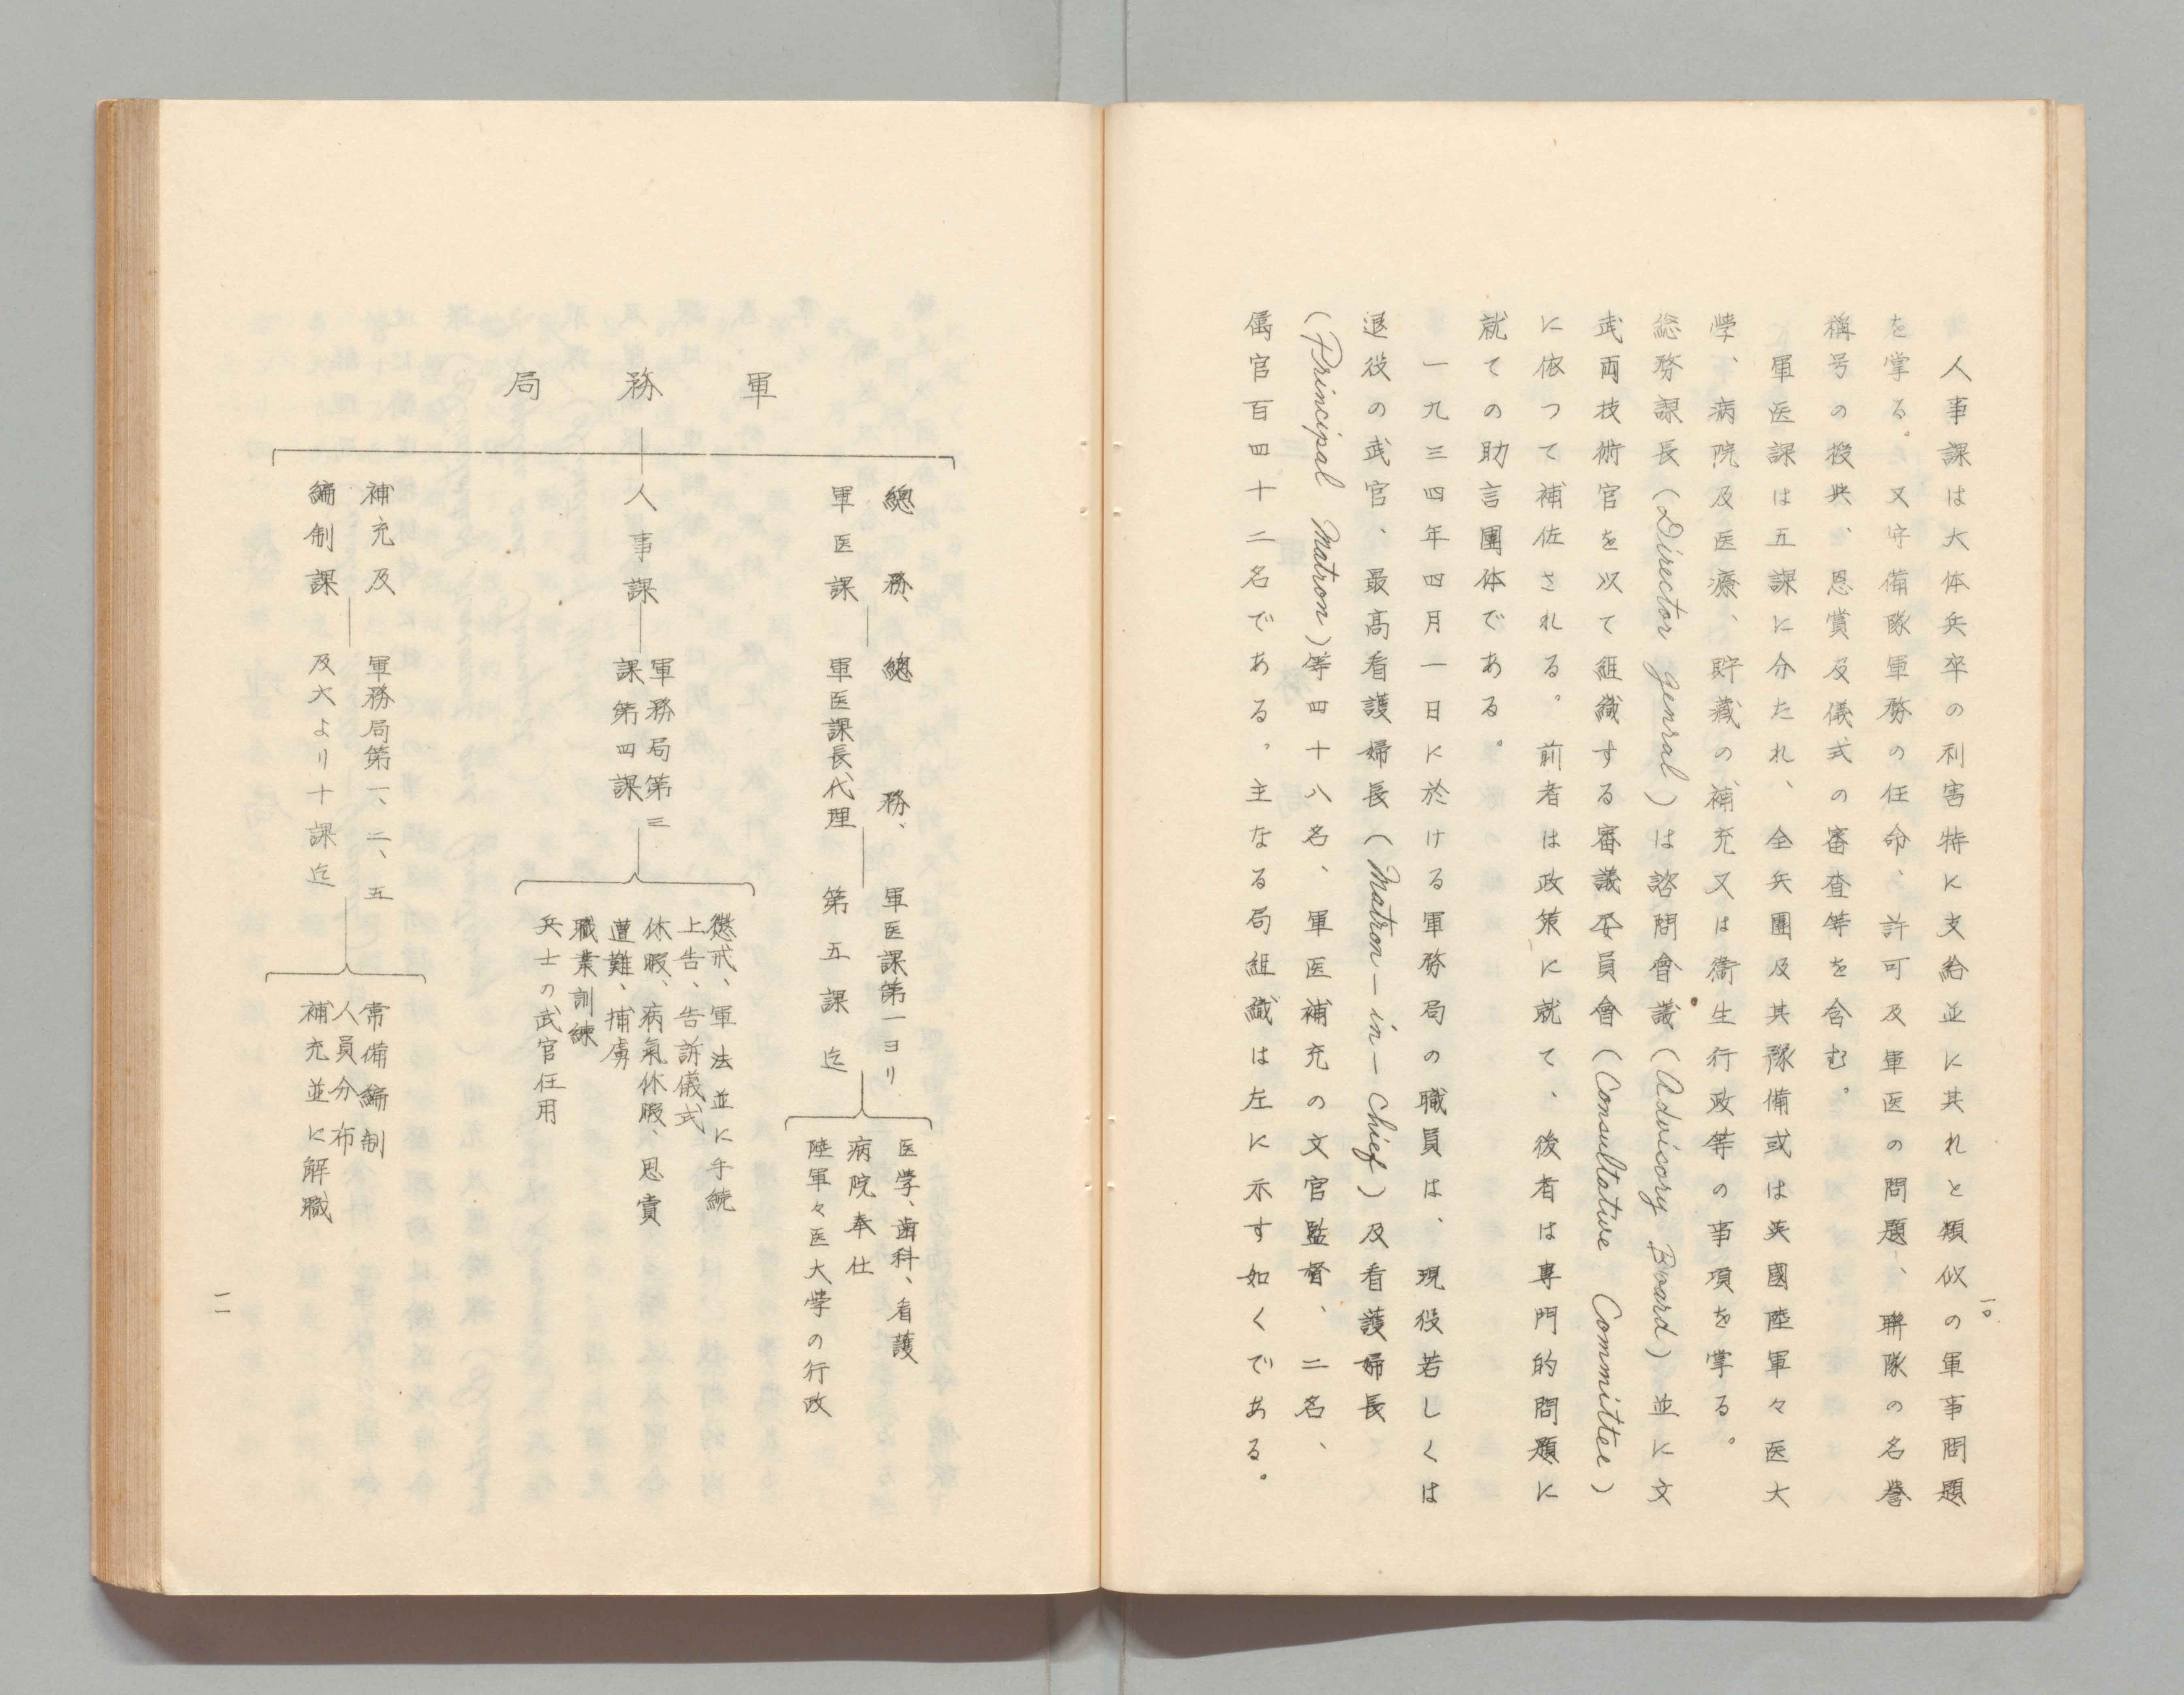 一〇
人事課は大体兵卒の利害特に支給並に其れと類似の軍事問題
を掌る。又守備隊軍務の任命、許可及軍医の問題、聯隊の名誉
稱号の授典、恩賞及儀式の審査等を含む。
軍医課は五課に分たれ、全兵團及其豫備或は英國陸軍々医大
學、病院及医療、貯蔵の補充又は衛生行政等の事項を掌る。
総務課長(Director genral)は諮問會議(Advicory Board)並に文
武両技術官を以て組織する審議委員會(Consultative Committee)
に依つて補佐される。前者は政策に就て、後者は専門的問題に
就ての助言團体である。
一九三四年四月一日に於ける軍務局の職員は、現役若しくは
退役の武官、最高看護婦長(Matron-in-Chief)及看護婦長
(Principal Matron)等四十八名、軍医補充の文官監督、二名、
属官百四十二名である。主なる局組織は左に示す如くである。
軍務局
總務、總務、
軍医課
軍医課長代理
軍医課第一ヨリ
第五課迄
医學、歯科、看護
病院奉仕
陸軍々医大學の行政
人事課
軍務局第三
課第四課
懲戒、軍法並に手続
上告、告訴儀式
休暇、病氣休暇、恩賞
遭難、捕虜
職業訓練
兵士の武官任用
補充及
編制課
軍務局第一、二、五
及六より十課迄
常備編制
人員分布
補充並に解職
一一